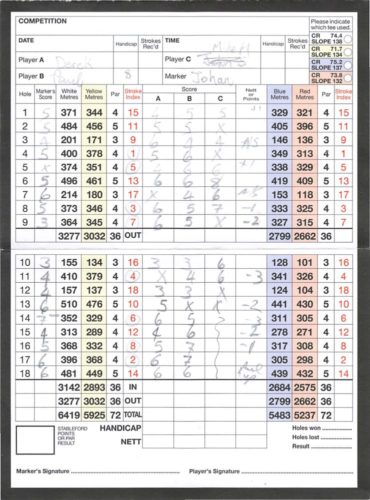 COMPETITION
Please indicate which tee used.
DATE Handicap Strokes Rec'd TIME Handicap Strokes Rec'd CR 74.4 SLOPE 138
CR 71.7 SLOPE 134
Player A Derek Player C
CR 75.2 SLOPE 137
Player B Paul 8 Marker Johan
CR 73.8 SLOPE 132
Hole Marker's Score White Metres Yellow Metres Par Stroke Index Score A B C Nett or Points Blue Metres Red Metres Par Stroke Index
1 5 371 344 4 15 5 5 329 321 4 15
2 5 484 456 5 11 5 5 405 396 5 11
3 201 171 3 9 146 136 3 9
4 5 400 378 4 1 5 6 X 349 313 4 1
5 X 374 351 4 5 338 319 4 5
6 5 496 461 5 13 6 6 8 419 409 5 13
7 6 214 180 3 17 X 4 6 153 118 3 17
8 5 373 346 4 3 6 5 7 -1 333 325 4 3
9 5 364 345 4 7 6 5 X -2 327 315 4 7
3277 3032 36 OUT 2799 2662 36
10 3 155 134 3 16 3 3 6 128 101 3 16
11 4 410 379 4 4 X 4 6 -3 341 326 4 4
12 4 157 137 3 18 3 3 X 124 104 3 18
13 6 510 476 5 10 5 X X -2 441 430 5 10
14 7 352 329 4 6 6 5 -3 311 305 4 6
15 5 313 289 4 12 4 6 -2 278 271 4 12
16 5 368 332 4 8 5 7 -1 317 308 4 8
17 6 396 368 4 2 6 7 305 298 4 2
18 6 481 449 5 14 6 6 439 432 5 14
3142 2893 36 IN 2684 2575 36
3277 3032 36 OUT 2799 2662 36
6419 5925 72 TOTAL 5483 5237 72
STABLEFORD POINTS OR PAR RESULT HANDICAP
NETT
Holes won
Holes lost
Result
Marker's Signature Player's Signature